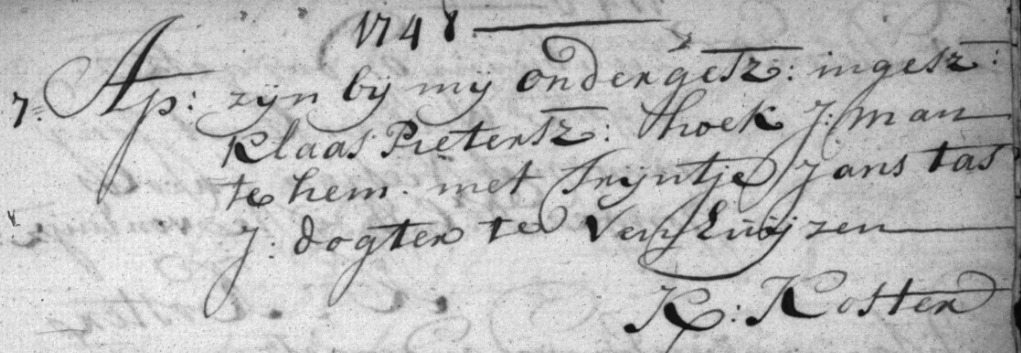 1748
7 = Ap: zÿn bÿ mÿ ondergetz: ingesz:
Klaas Pietersz: Hoek J: man
te hem. met Trÿntje Jans tas
J: dogter te Venhuÿzen
K: Koster